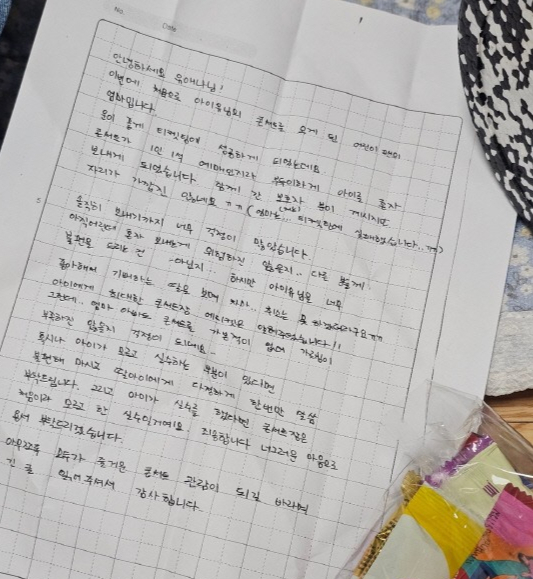 No.
Date
안녕하세요 유애나님!
이번에 처음으로 아이유님의 콘서트를 오게 된 어린이 팬의
엄마입니다.
운이 좋게 티켓팅에 성공하게 되었는데요.
콘서트가 1인 1석 예매인지라 부득이하게 아이를 혼자
보내게 되었습니다. 함께 간 보호자 분이 계시지만
자리가 가깝진 않네요 ㅠㅠ (엄마는... 티켓팅에 실패했습니다..ㅠㅠ)
솔직히 보내기까지 너무 걱정이 많았습니다
아직어린데 혼자 보내는게 위험하진 않을지.. 다른 분들께
불편을 드리는 건 아닌지... 하지만 아이유님을 너무
좋아해서 기뻐하는 딸을 보며 차마.. 취소는 못 하겠더라구요ㅠㅠ
아이에게 최대한 콘서트장 에티켓은 알려주었습니다!!
그런데.. 엄마 아빠도 콘서트를 가본적이 없어 가르침이
부족하진 않을지 걱정이 되네요..
혹시나 아이가 모르고 실수하는 부분이 있다면
불편해 마시고 딸아이에게 다정하게 한번만 말씀
부탁드립니다. 그리고 아이가 실수를 했다면 콘서트장은
처음이라 모르고 한 실수일거예요. 죄송합니다 너그러운 마음으로
용서 부탁드리겠습니다.
아무쪼록 모두가 즐거운 콘서트 관람이 되길 바라며
긴 글 읽어주셔서 감사합니다.
5